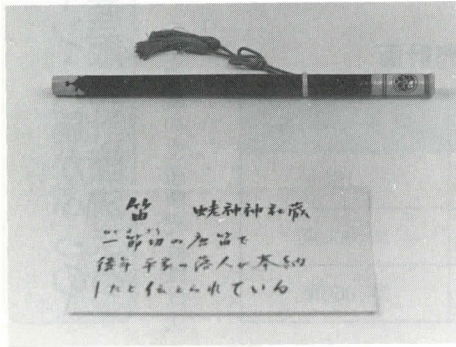 笛 蛯神神社蔵
一節切の唐笛で
後年平家の落人が奉納
したと伝えられている